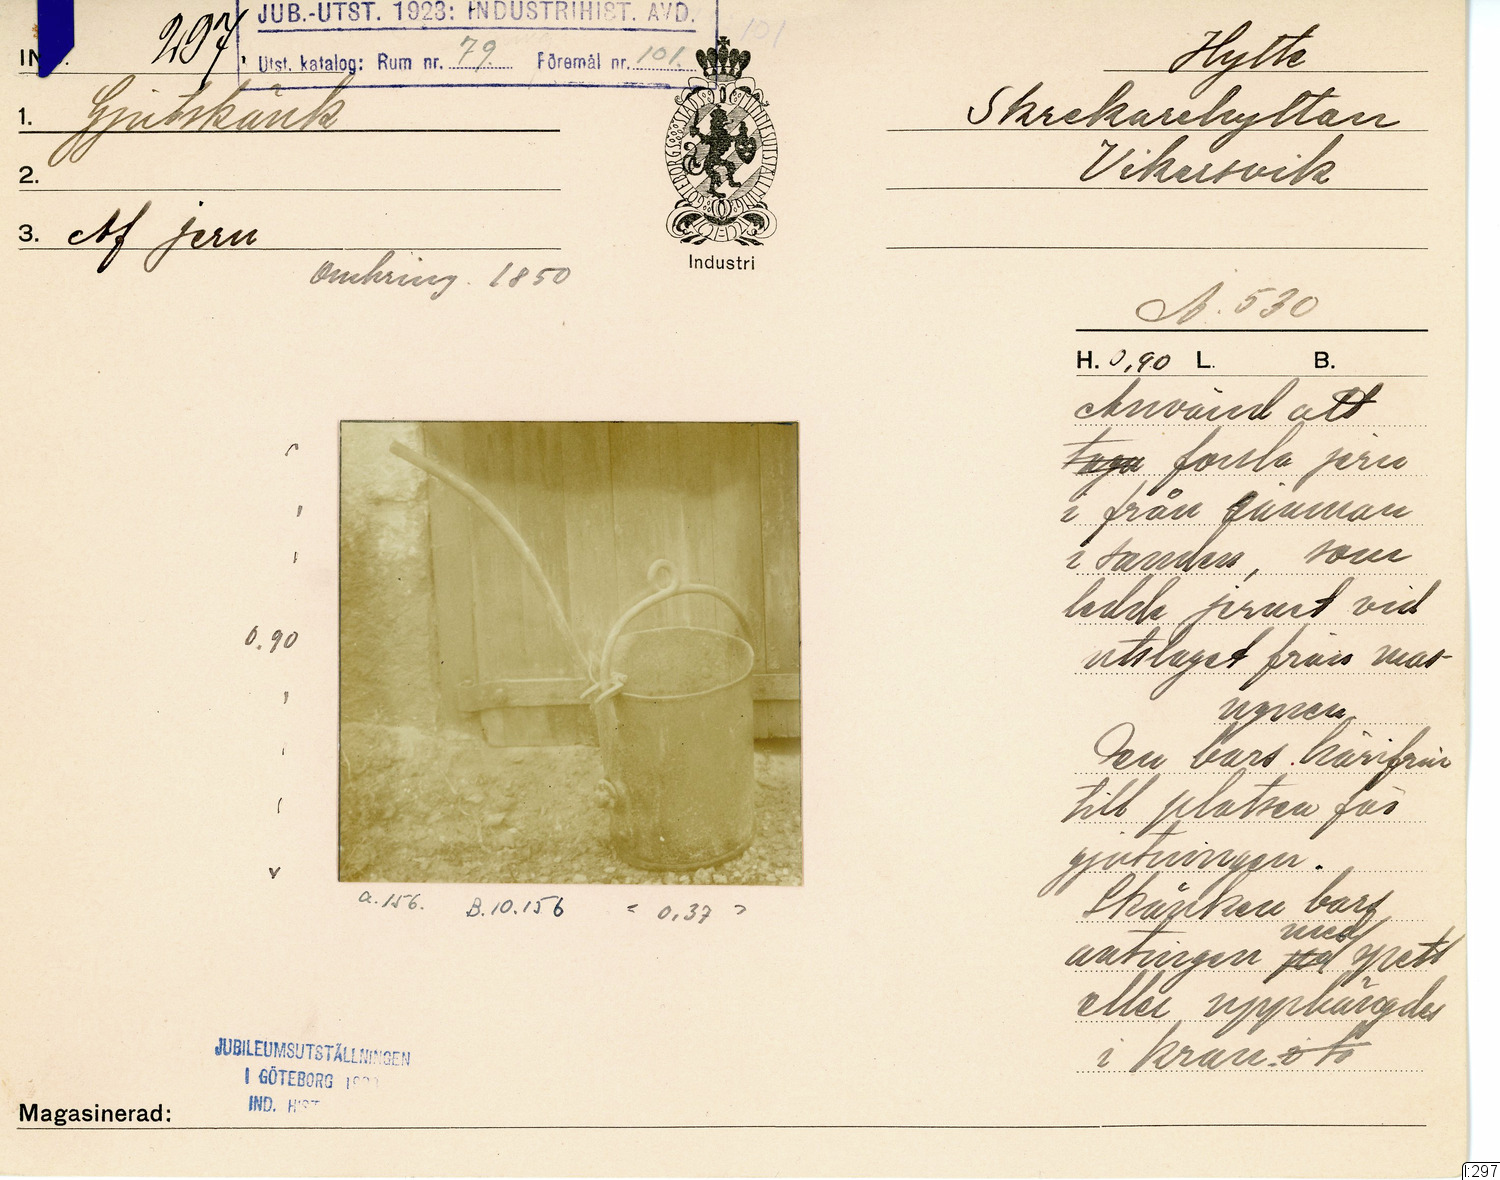 JUB.-UTST. 1923: INDUSTRIHIST. AVD.
Utst. katalog: Rum nr. 79. Föremål nr. 101.
101
IN 297.
1. Gjutskänk
2.
3. Af jern
Omkring. 1850
GÖTEBORGS STADS MINNESUTSTÄLLNING
Industri
Hytte
Skrekarehyttan
Vikersvik
A. 530
H. 0,90 L. B.
Använd att
taga forsla jern
i från rännan
i sanden, som
ledde jernet vid
utslaget från mas-
ugnen
Den bars härifrån
till platsen för
gjutningen.
Skänken bars
antingen på med spett
eller upphängdes
i kran.
0.90
a.156. B.10.156 0,37
JUBILEUMSUTSTÄLLNINGEN
I GÖTEBORG 1923
IND. HIST
Magasinerad:
I:297